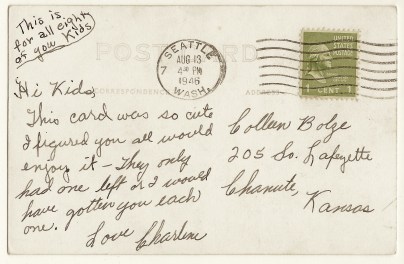 This is
for all eight
of you Kids
POSTCARD
SEATTLE
AUG 13
7 4 30 PM
1946
WASH.
UNITED
STATES
1 CENT 1
CORRESPONDENCE ADDRESS
Hi Kids,
This card was so cute
I figured you all would
enjoy it - They only
had one left or I would
have gotten you each
one.
Love Charlene
Colleen Bolze
205 So. Lafayette
Chanute,
Kansas